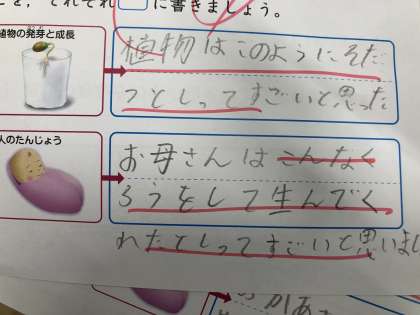 に書きましょう。
植物の発芽と成長
植物はこのようにそだ
つとしってすごいと思った
人のたんじょう
お母さんはこんなく
ろうをして生んでく
れたとしってすごいと思いまし